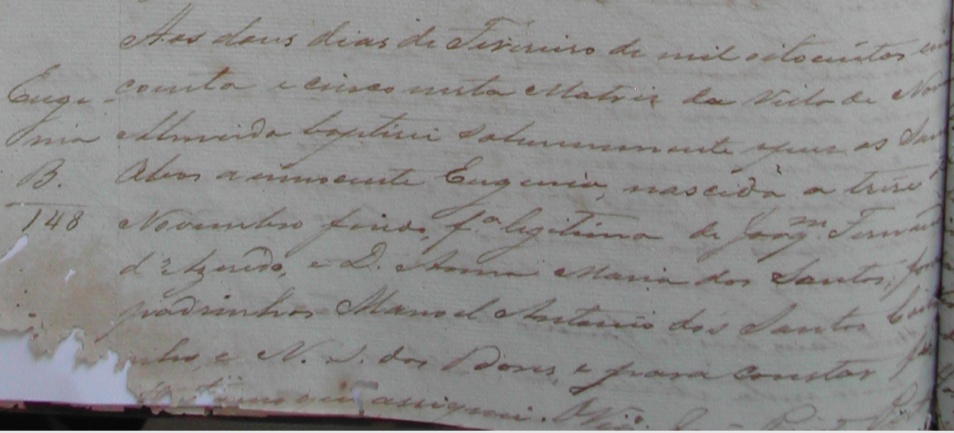 Aos dous dias de Fevereiro de mil oitocentos cin
Euge coenta e cinco nesta Matriz da Villa de Nov
nia Almeida baptisei solemnemente e puz os San
B. Oleos a innocente Eugenia, nascida a trese
148 Novembro findo, fª legitima de Joaqm. Fernan
d'Azeredo, e D. Anna Maria dos Santos, for
padrinhos Manoel Antonio dos Santos
nho, e N. S. dos e para constar
assignei. O Vigº.